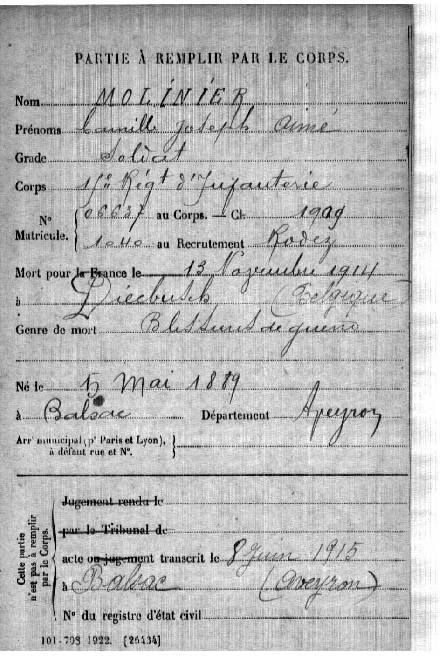 PARTIE À REMPLIR PAR LE CORPS.
Nom MOLINIER
Prénoms Camille Joseph Aimé
Grade Soldat
Corps Régt d'Infanterie
N° Matricule. 06637 au Corps. — Cl. 1909
1040 au Recrutement Rodez
Mort pour la France le 13 Novembre 1914
à (Belgique)
Genre de mort Blessures de guerre
Né le 5 Mai 1889
à Balsac Département Aveyron
Arrt municipal (pr Paris et Lyon),
à défaut rue et N°.
Cette partie n'est pas à remplir par le Corps.
Jugement rendu le
par le Tribunal de
acte ou jugement transcrit le 8 Juin 1915
à Balsac (Aveyron)
N° du registre d'état civil
101-708 1922. [26434]